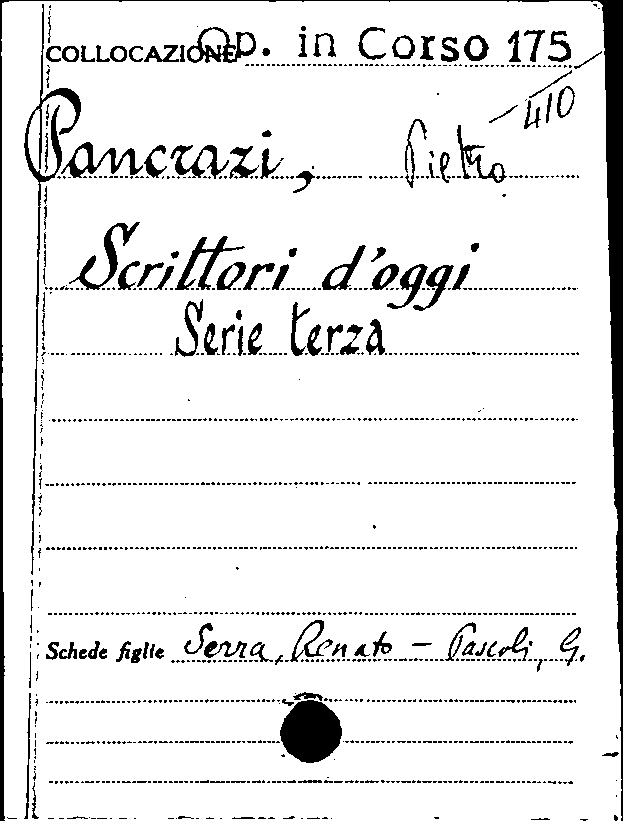 COLLOCAZIONE Op. in Corso 175
410
Pancrazi, Pietro
Scrittori d'oggi
Serie terza
Schede figlie Serra, Renato – Pascoli, G.